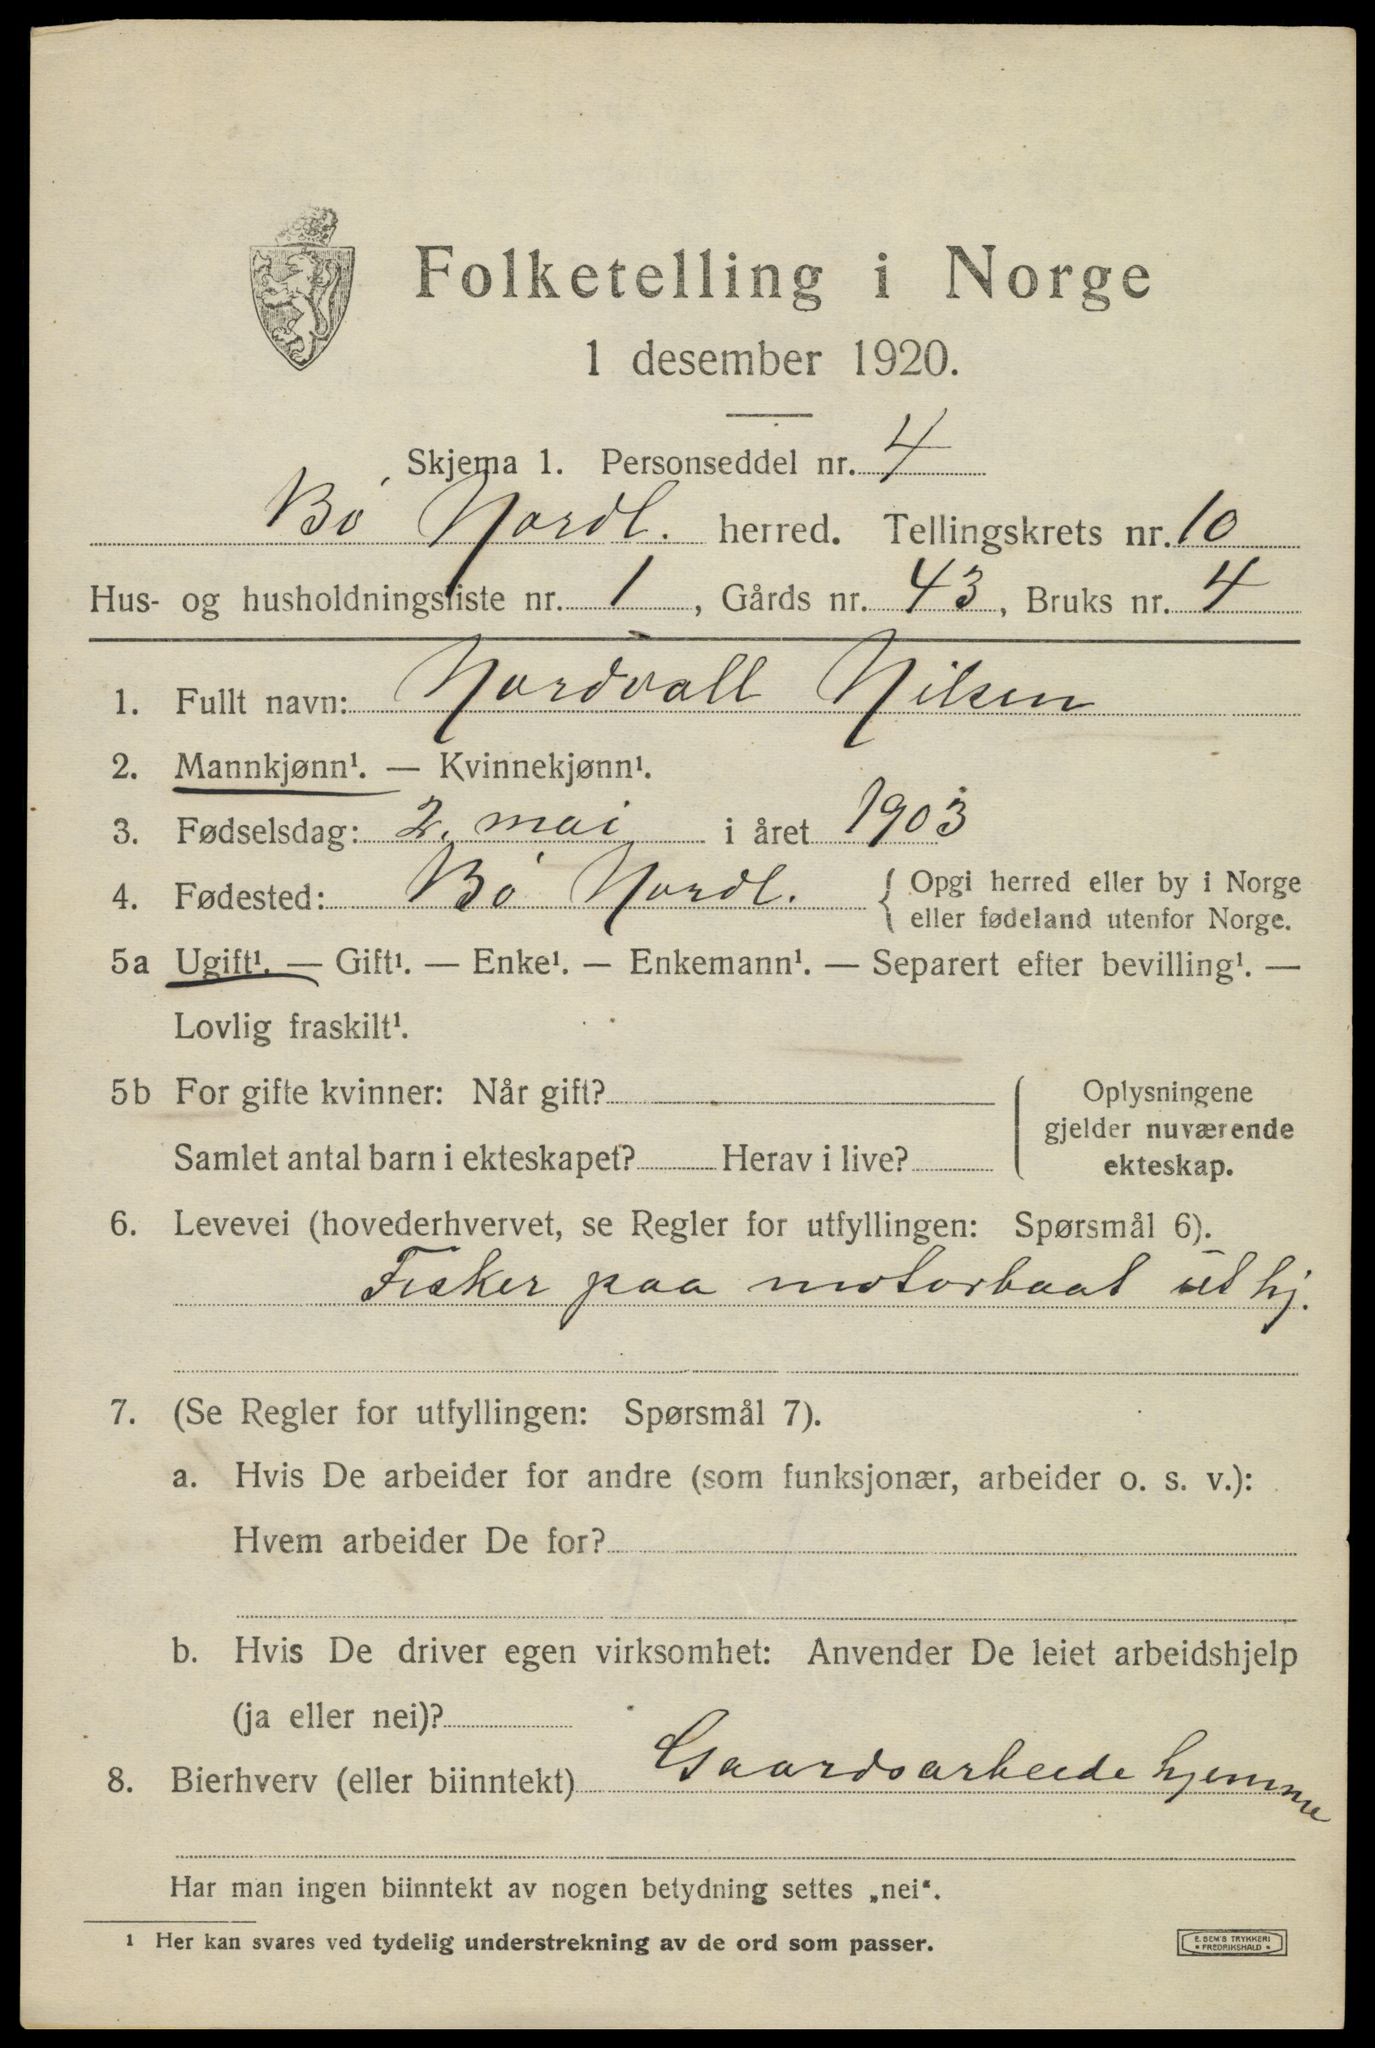 Folketelling i Norge
1 desember 1920.
Skjema 1. Personseddel nr. 4
Bø Nordl. herred. Tellingskrets nr. 10
Hus- og husholdningsliste nr. 1, Gårds nr. 43, Bruks nr. 4
1. Fullt navn: Nordvall Nilsen
2. Mannkjønn¹. — Kvinnekjønn¹.
3. Fødselsdag: 2. mai i året 1903
4. Fødested: Bø Nordl. { Opgi herred eller by i Norge
eller fødeland utenfor Norge.
5a Ugift¹. — Gift¹. — Enke¹. — Enkemann¹. — Separert efter bevilling¹. —
Lovlig fraskilt¹.
5b For gifte kvinner: Når gift?
Samlet antal barn i ekteskapet? Herav i live?
Oplysningene
gjelder nuværende
ekteskap.
6. Levevei (hovederhvervet, se Regler for utfyllingen: Spørsmål 6).
Fisker paa motorbaat hj.
7. (Se Regler for utfyllingen: Spørsmål 7).
a. Hvis De arbeider for andre (som funksjonær, arbeider o. s. v.):
Hvem arbeider De for?
b. Hvis De driver egen virksomhet: Anvender De leiet arbeidshjelp
(ja eller nei)?
8. Bierhverv (eller biinntekt) Gaardsarbeide hjemme
Har man ingen biinntekt av nogen betydning settes „nei“.
¹ Her kan svares ved tydelig understrekning av de ord som passer.
E. SEM'S TRYKKERI
* FREDRIKSHALD *